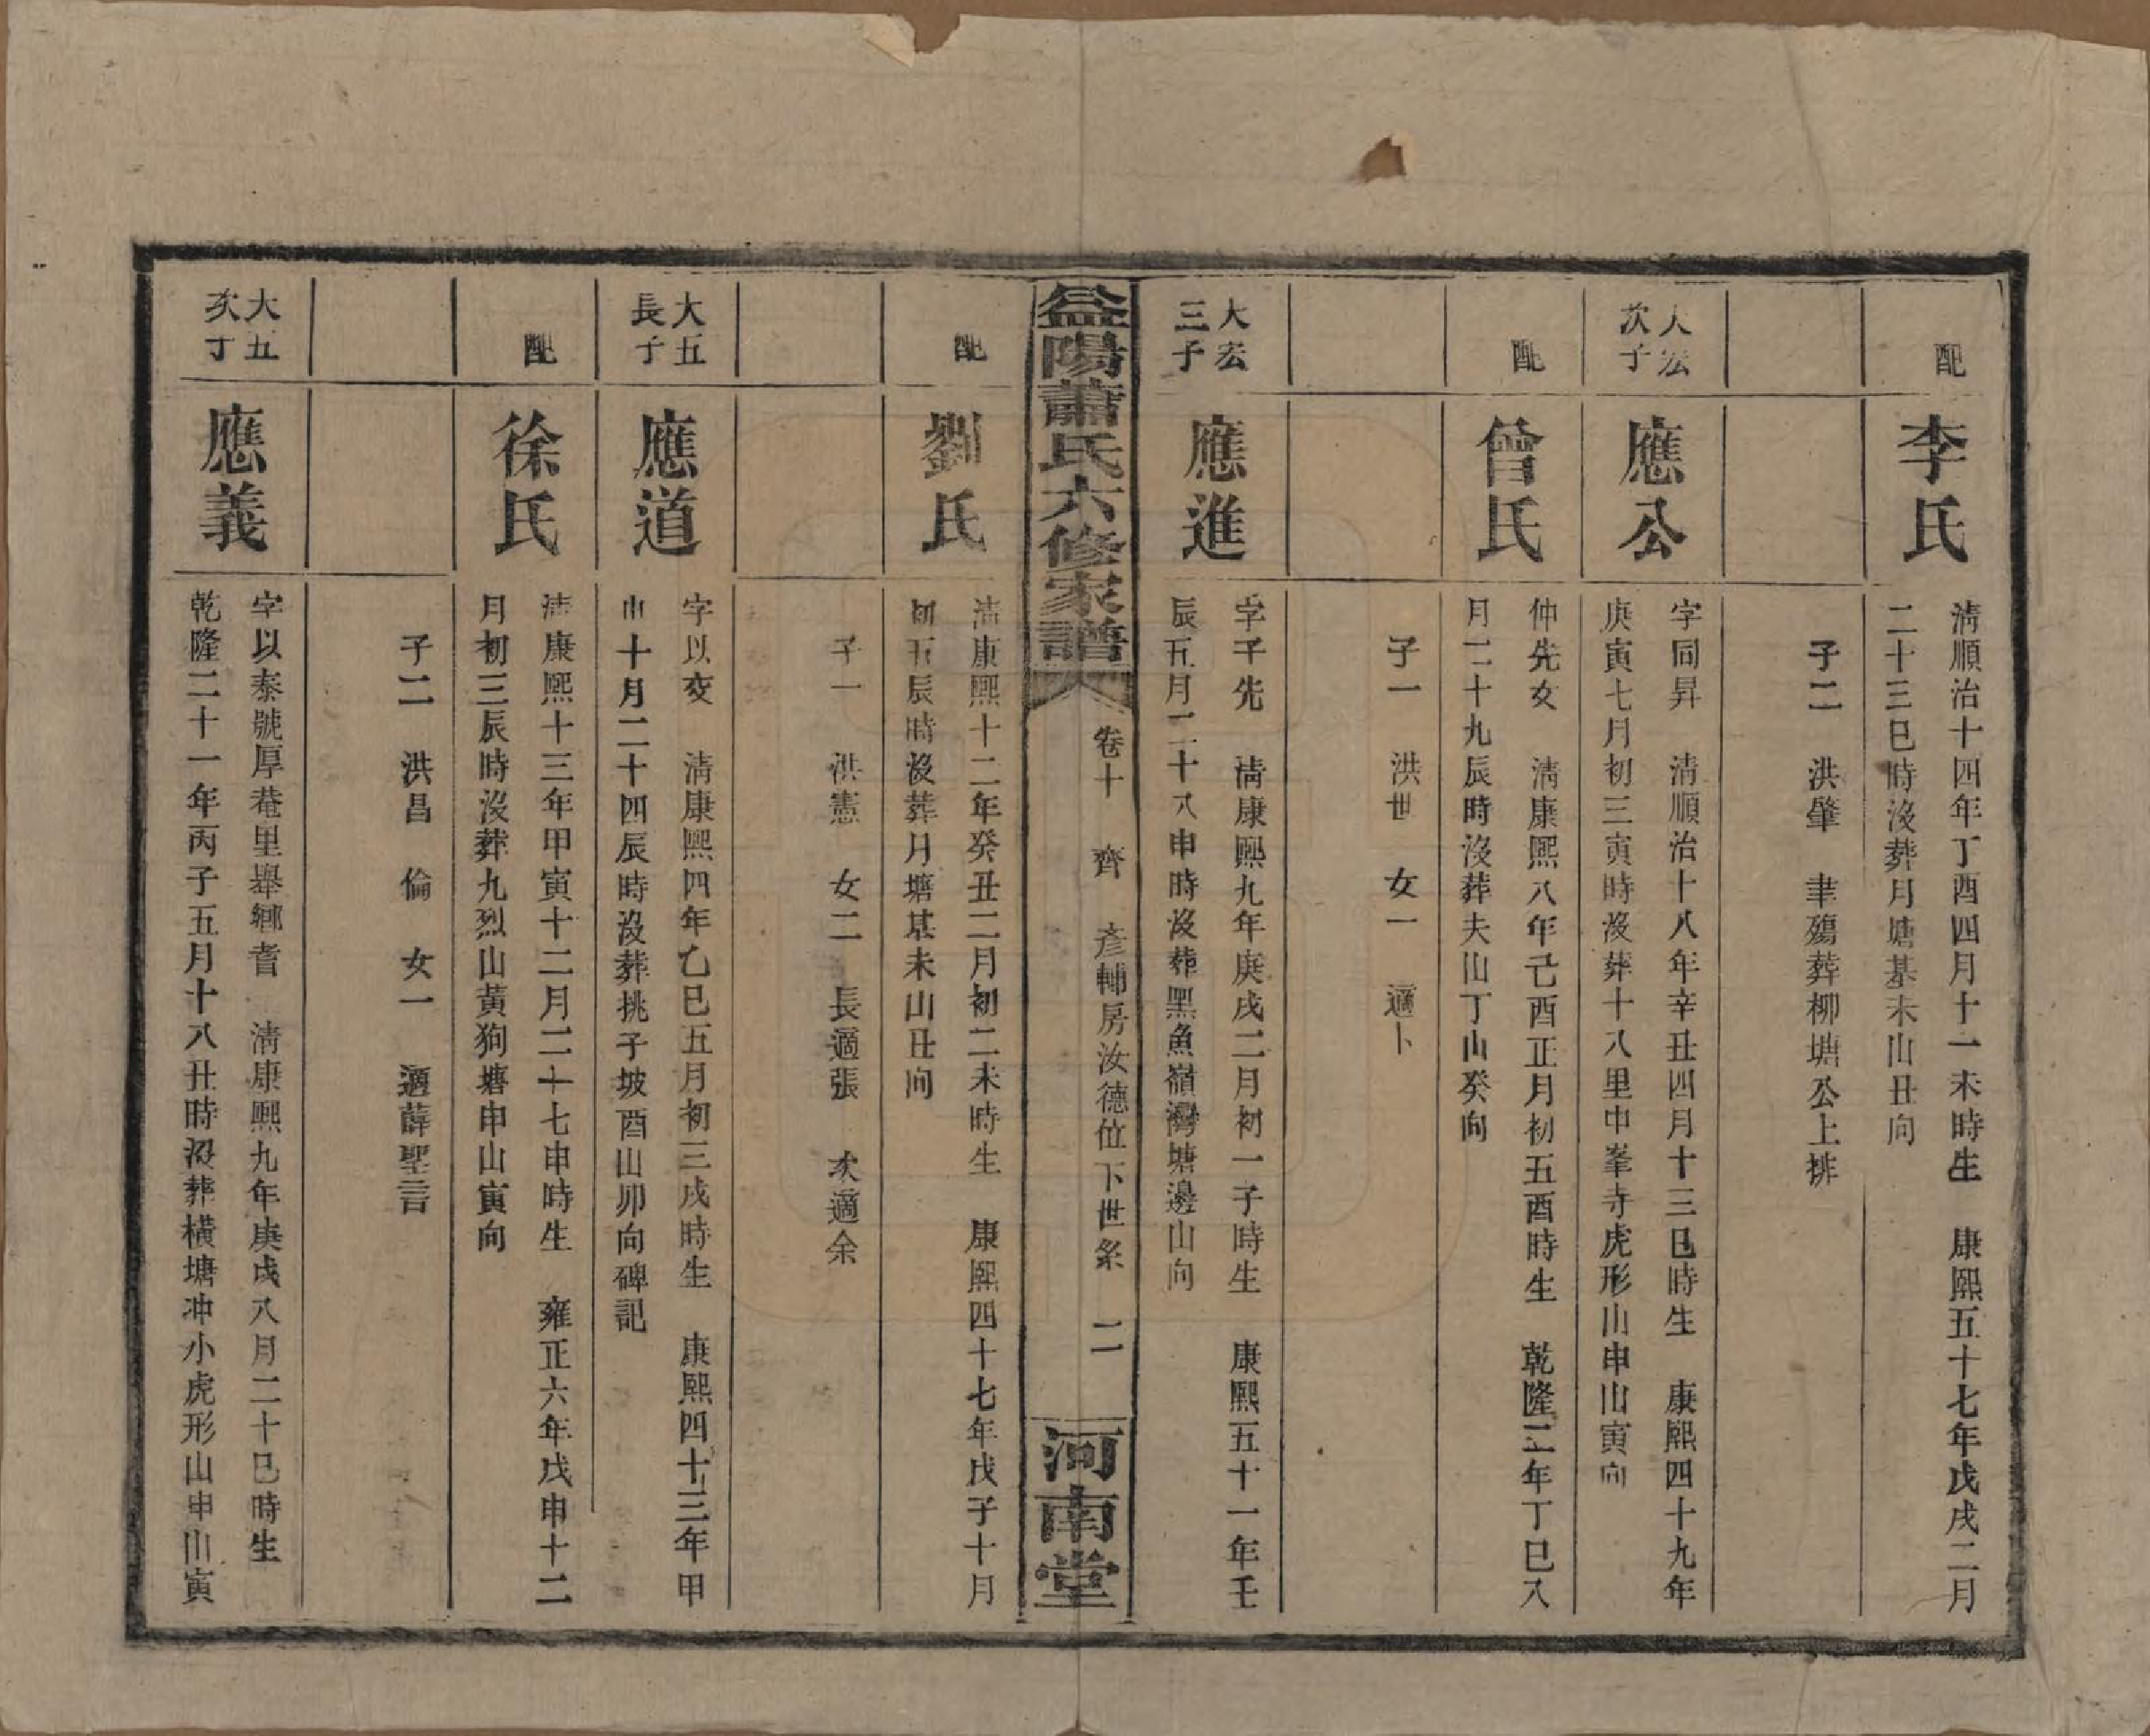 配
李氏
清順治十四年丁酉四月十一未時生 康熙五十七年戊戌二月
二十三巳時沒葬月塘基未山丑向
子二 洪肇 聿殤葬柳塘公上排
大宏
次子
應公
字同昇 清順治十八年辛丑四月十三巳時生 康熙四十九年
庚寅七月初三寅時沒葬十八里中峯寺虎形山申山寅向
配
曾氏
仲先女 清康熙八年己酉正月初五酉時生 乾隆二年丁巳八
月二十九辰時沒葬夫山丁山癸向
子一 洪世 女一 適卜
大宏
三子
應進
字子先 清康熙九年庚戌二月初一子時生 康熙五十一年壬
辰五月二十八申時沒葬黑魚嶺灣塘邊山向
益陽蕭氏六修家譜
卷十 齊 彥輔房汝德位下世系 二
河南堂
配
劉氏
清康熙十二年癸丑二月初二未時生 康熙四十七年戊子十月
初五辰時沒葬月塘基未山丑向
子一 洪憲 女二 長適張 次適余
大五
長子
應道
字以交 清康熙四年乙巳五月初三戌時生 康熙四十三年甲
申十月二十四辰時沒葬挑子坡酉山卯向碑記
配
徐氏
清康熙十三年甲寅十二月二十七申時生 雍正六年戊申十二
月初三辰時沒葬九烈山黃狗塘申山寅向
子二 洪昌 倫 女一 適薛聖言
大五
次子
應義
字以泰號厚菴里舉鄉耆 清康熙九年庚戌八月二十巳時生
乾隆二十一年丙子五月十八丑時沒葬橫塘冲小虎形山申山寅